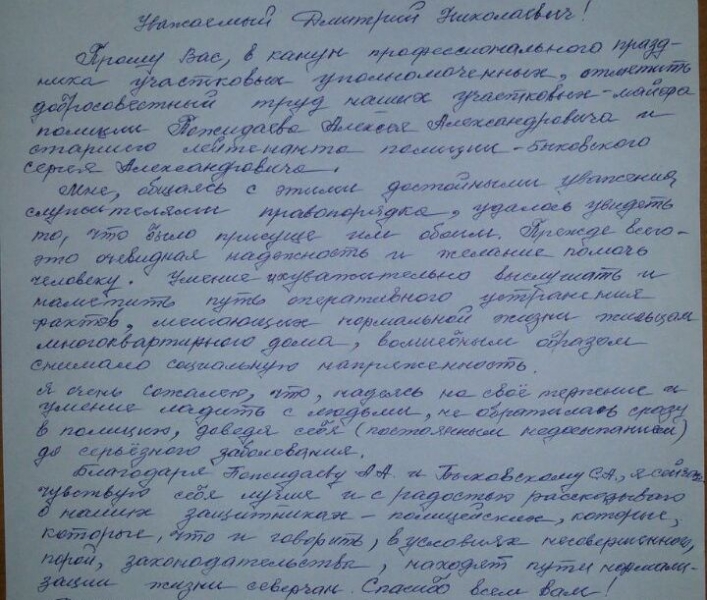 Уважаемый Дмитрий Николаевич!
Прошу Вас, в канун профессионального празд-
ника участковых уполномоченных, отметить
добросовестный труд наших участковых - майора
полиции Пожидаева Алексея Александровича и
старшего лейтенанта полиции - Быховского
Сергея Александровича.
Мне, общаясь с этими достойными уважения
служителями правопорядка, удалось увидеть
то, что было присуще им обоим. Прежде всего -
это очевидная надежность и желание помочь
человеку. Умение уважительно выслушать и
наметить путь оперативного устранения
фактов, мешающих нормальной жизни жильцам
многоквартирного дома, волшебным образом
снимало социальную напряженность.
Я очень сожалею, что, надеясь на своё терпение и
умение ладить с людьми, не обратилась сразу
в полицию, доведя себя (постоянным недосыпанием)
до серьёзного заболевания.
Благодаря Пожидаеву А.А. и Быховскому С.А., я сейчас
чувствую себя лучше и с радостью рассказываю
о наших защитниках - полицейских, которые,
которые, что и говорить, в условиях несовершенного,
порой, законодательства, находят пути нормали-
зации жизни северчан. Спасибо всем вам!